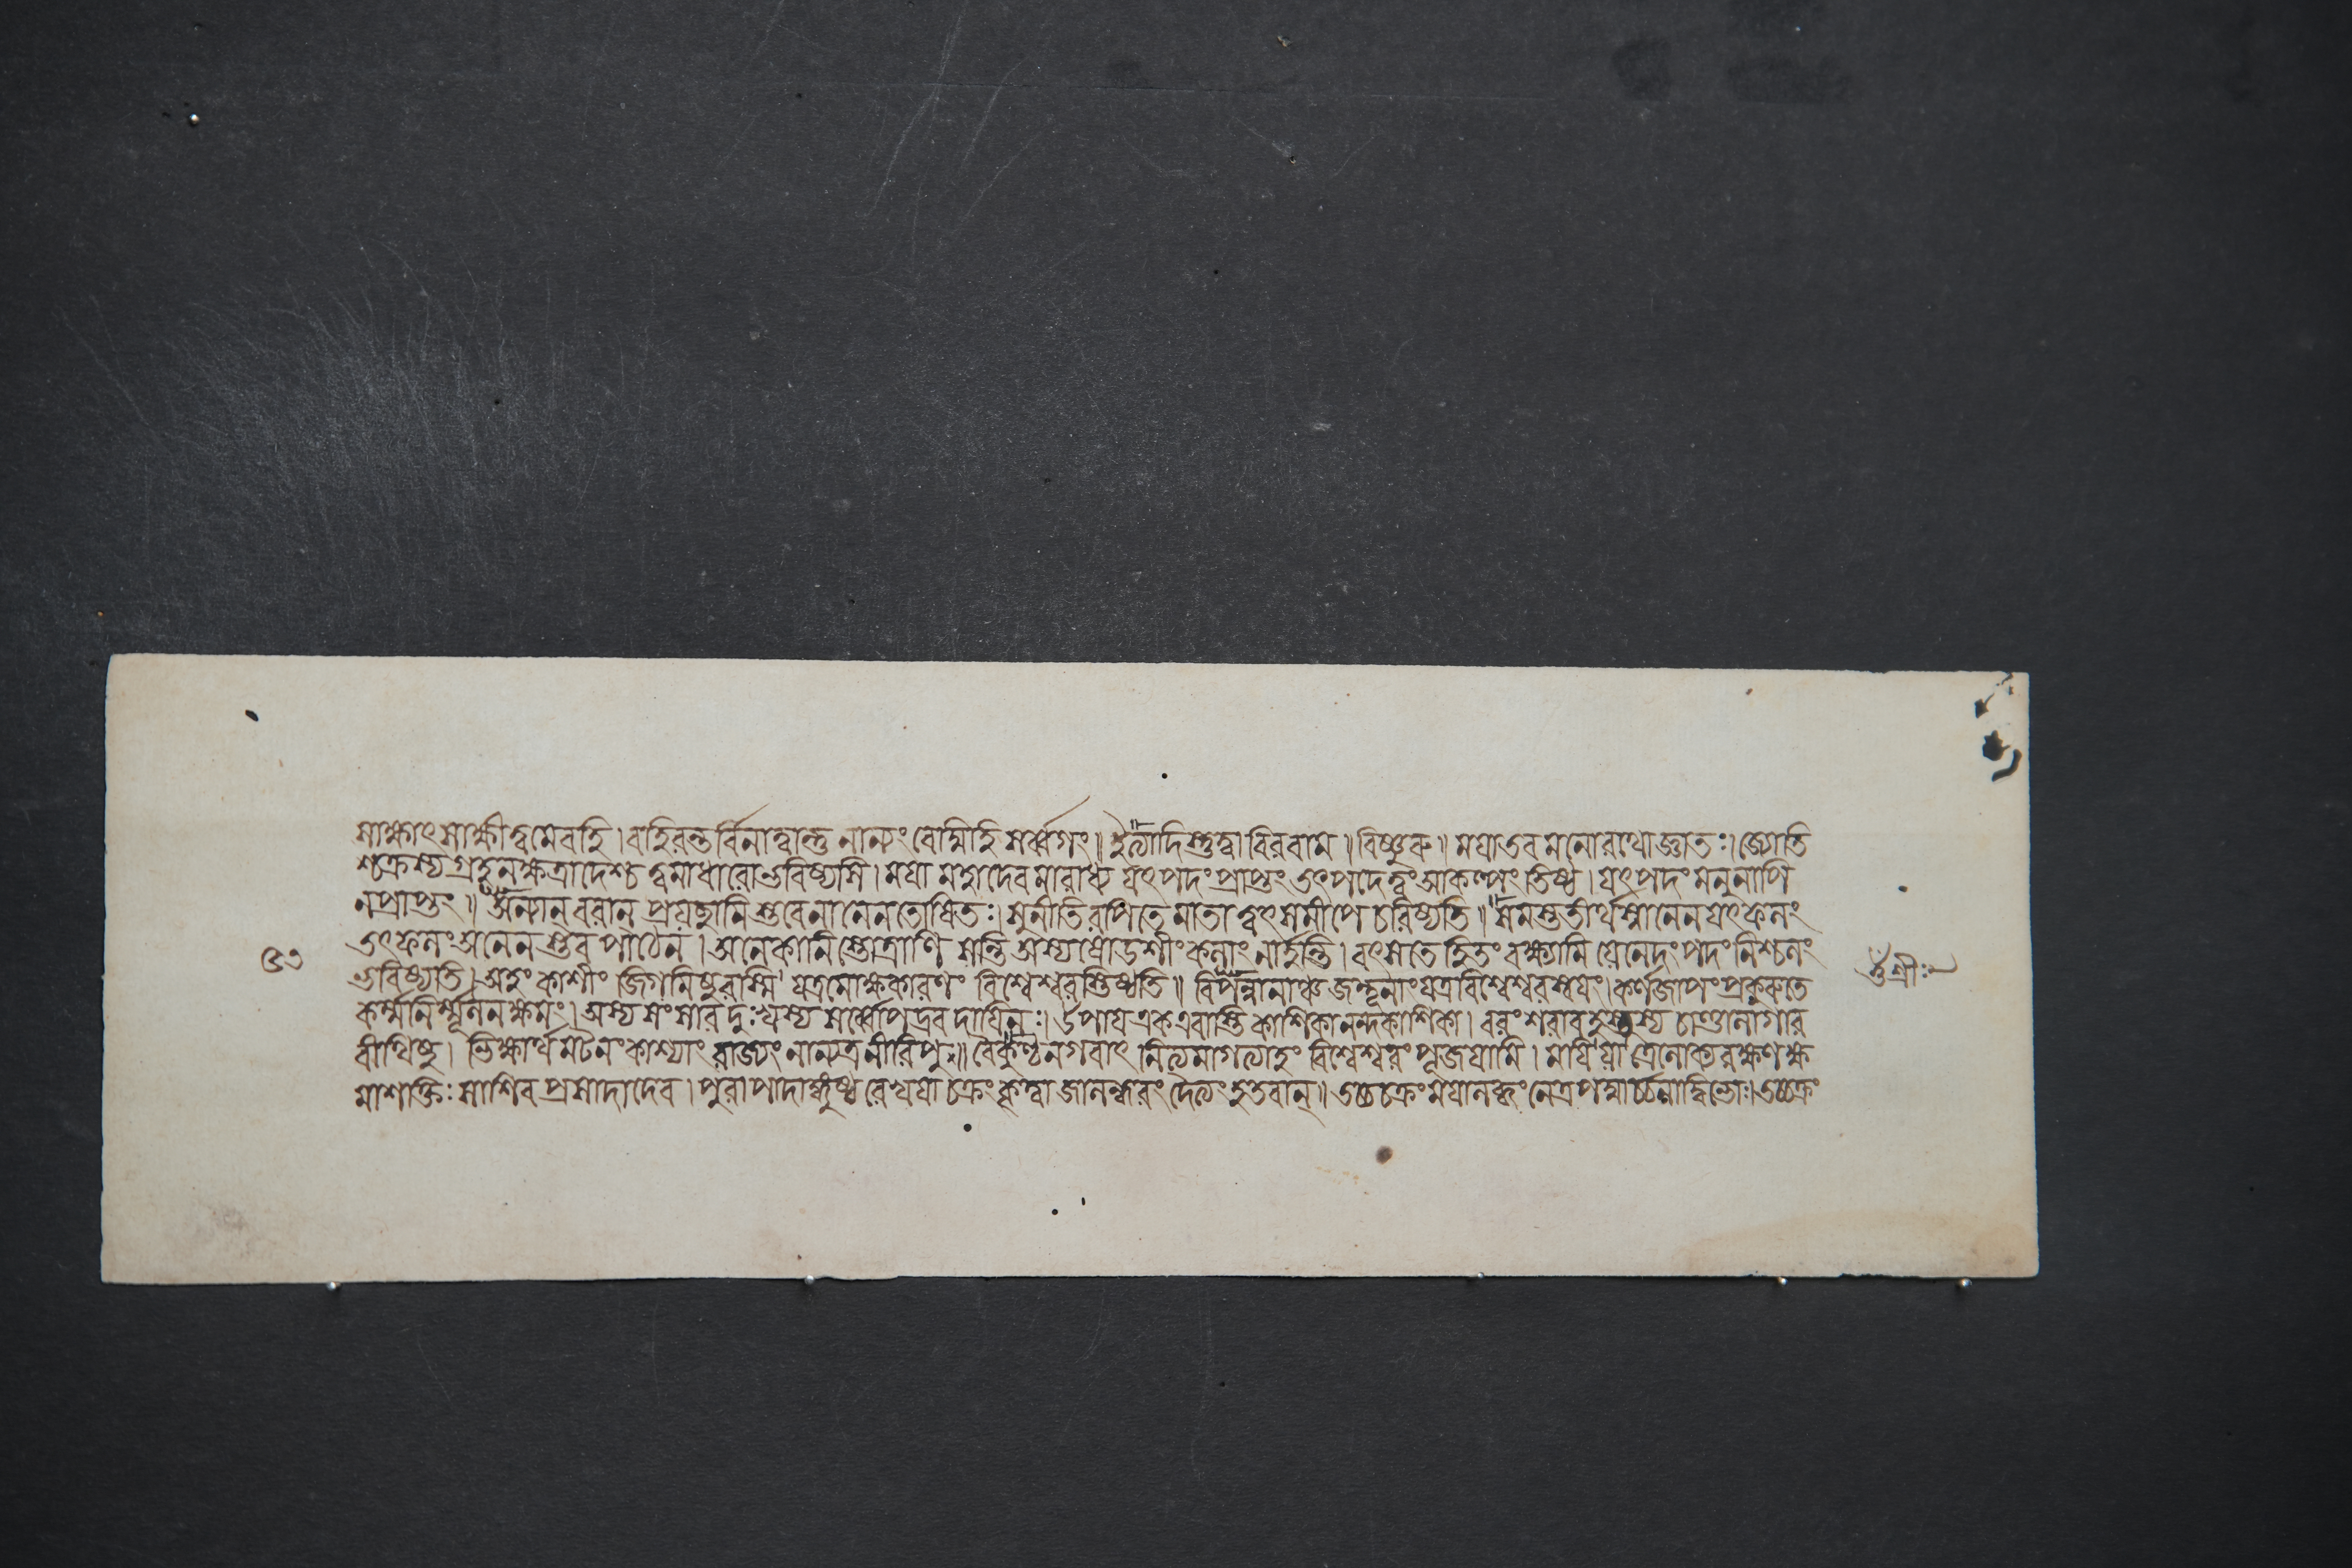 সাক্ষাৎ সাক্ষী ত্বমেবহি । বাহিরন্ত র্বিনাত্বান্তু নান্যং বেদ্মিহি সর্ব্বগং ॥ ইত্যাদিস্তুত্বা বিররাম ॥ বিষ্ণুরু ॥ ময়াতব মনোরথোজ্ঞাতঃ । জ্যোতি
শ্চক্রস্য গ্রহনক্ষত্রাদেশ্চ ত্বমাধারোভবিষ্যসি । ময়া মহাদেবমারাধ্য যৎপদং প্রাপ্তং তৎপদেত্বং আকল্পং তিষ্ঠ । যৎপদং মনুনাপি
নপ্রাপ্তং ॥ অন্যান্ বরান্ প্রযচ্ছামি স্তবেনানেনতোষিতঃ । সুনীতিরপিতে মাতা ত্বৎসমীপে চরিষ্যতি ॥ সমস্ততীর্থস্নানেন যৎফলং
তৎফলং অনেন স্তব পাঠেন । অনেকানি স্তোত্রাণি সন্তি অস্যষোডশীং কলাং নার্হন্তি । বৎসতে হিতং বক্ষ্যামি যেনেদং পদং নিশ্চলং
ভবিষ্যতি । অহং কাশীং জিগমিষুরস্মি যত্রমোক্ষকারণং বিশ্বেশ্বরস্তিষ্ঠতি ॥ বিপন্নানাঞ্চ জন্তূনাং যত্রবিশ্বেশ্বরস্বয়ং । কর্ণজাপং প্রকুরুতে
কর্ম্মনির্ম্মূলনক্ষমং । অস্য সংসার দুঃখস্য সর্ব্বোপদ্রব দায়িনঃ । উপায় একএবাস্তি কাশিকানন্দকাশিকা । বরং শরাব হস্তস্য চাণ্ডালাগার
বীথিষু । ভিক্ষার্থমটনং কাশ্যাং রাজ্যং নান্যত্র নীরিপু ॥ বৈকুণ্ঠনগরাৎ নিত্যমাগত্যাহং বিশ্বেশ্বরং পূজয়ামি । ময়ি যা ত্রৈলোক্যরক্ষণক্ষ
মাশক্তিঃ সাশিব প্রসাদাদেব । পুরা পাদাঙ্গুষ্ঠ রেখয়া চক্রং কৃত্বা জালন্ধরং দৈত্যং হতবান্ ॥ তচ্চক্রং ময়ালব্ধং নেত্রপদ্মার্চ্চনাদ্বিভোঃ । তচ্চক্রং
শ্রীঃ